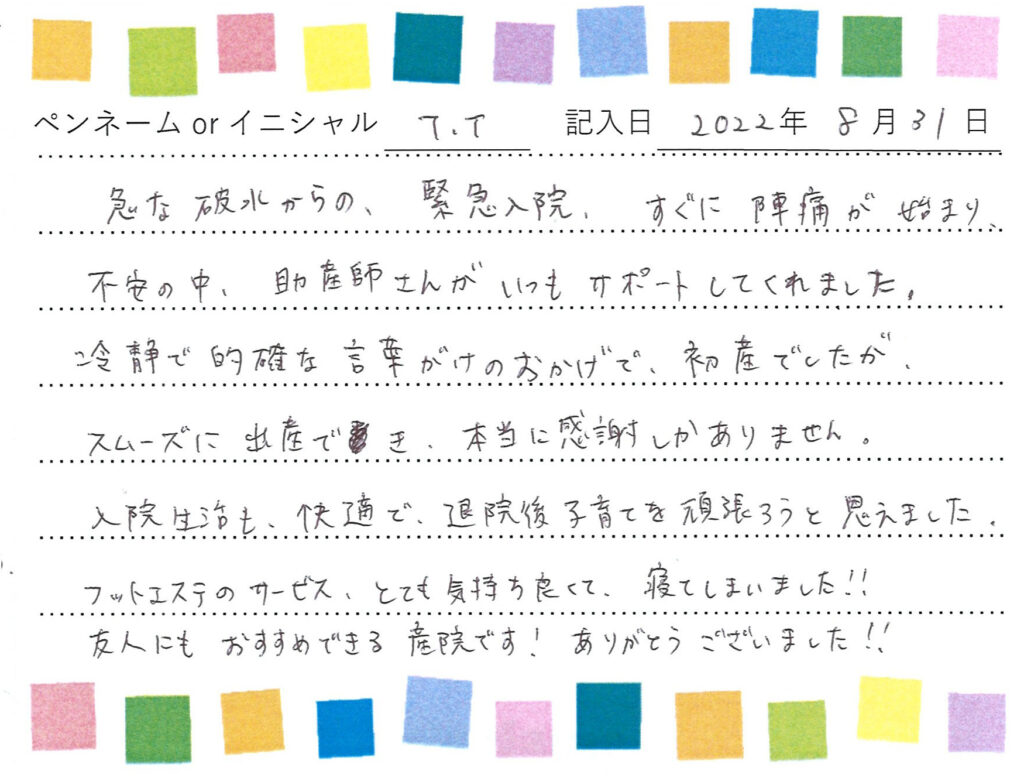 ペンネーム or イニシャル T.T 記入日 2022年 8月31日
急な破水からの、緊急入院、すぐに陣痛が始まり、
不安の中、助産師さんがいつもサポートしてくれました。
冷静で的確な言葉がけのおかげで、初産でしたが、
スムーズに出産でき、本当に感謝しかありません。
入院生活も、快適で、退院後子育てを頑張ろうと思えました。
フットエステのサービス、とても気持ち良くて、寝てしまいました!!
友人にもおすすめできる産院です!ありがとうございました!!